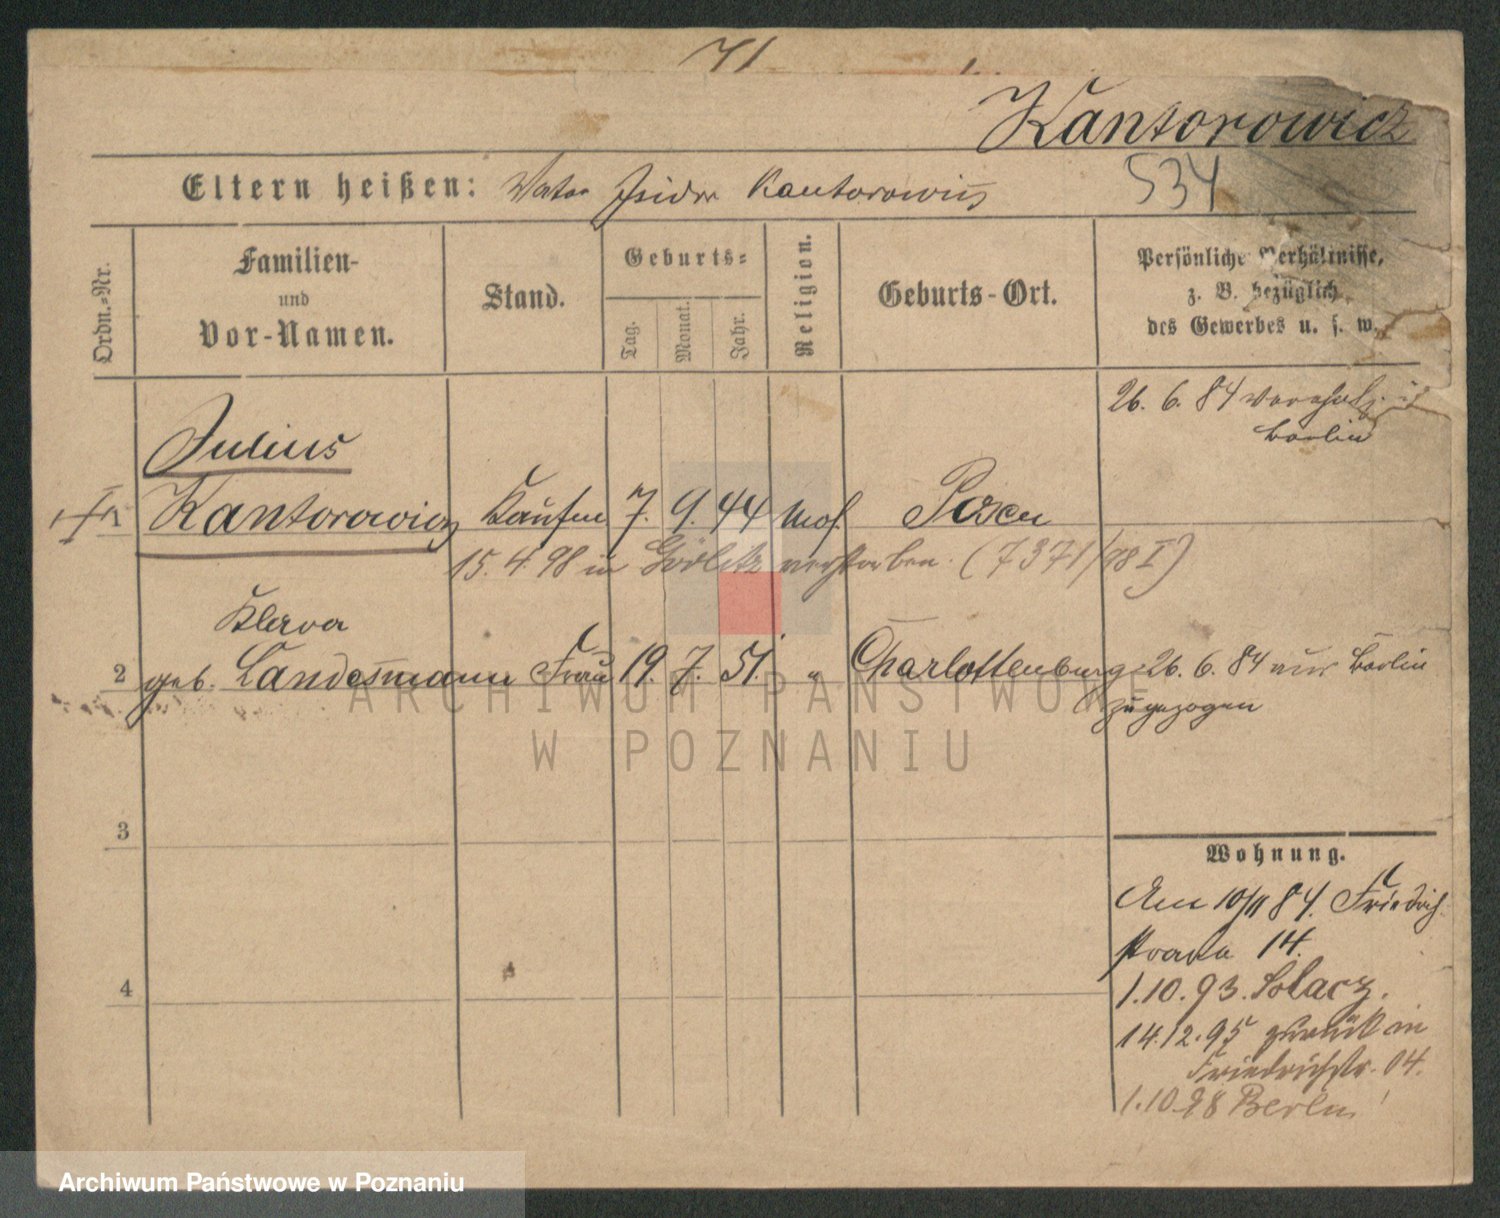 71
Kantorowicz
Eltern heißen: Vater Isidor Kantorowicz
534
Ordn.-Nr.
Familien-
und
Vor-Namen.
Stand.
Geburts-
Tag.
Monat.
Jahr.
Religion.
Geburts-Ort.
Persönliche Verhältnisse,
z. B. bezüglich
des Gewerbes u. s. w.
26. 6. 84 in
Berlin
Julius
1 Kantorowicz Kaufm 7. 9. 44 mos. Posen
15. 4. 98 in Görlitz verstorben. (7371/98 I)
Klara
2 geb. Landesmann Frau 19. 7. 51. " Charlottenburg 26. 6. 84 aus Berlin
zugezogen
ARCHIWUM PAŃSTWOWE
W POZNANIU
3
Wohnung.
Am 10/11 84. Friedrich
straße 14.
4
1.10.93. Solacz.
14.12.95 zurück in
Friedrichstr. 14.
1.10.98 Berlin
Archiwum Państwowe w Poznaniu